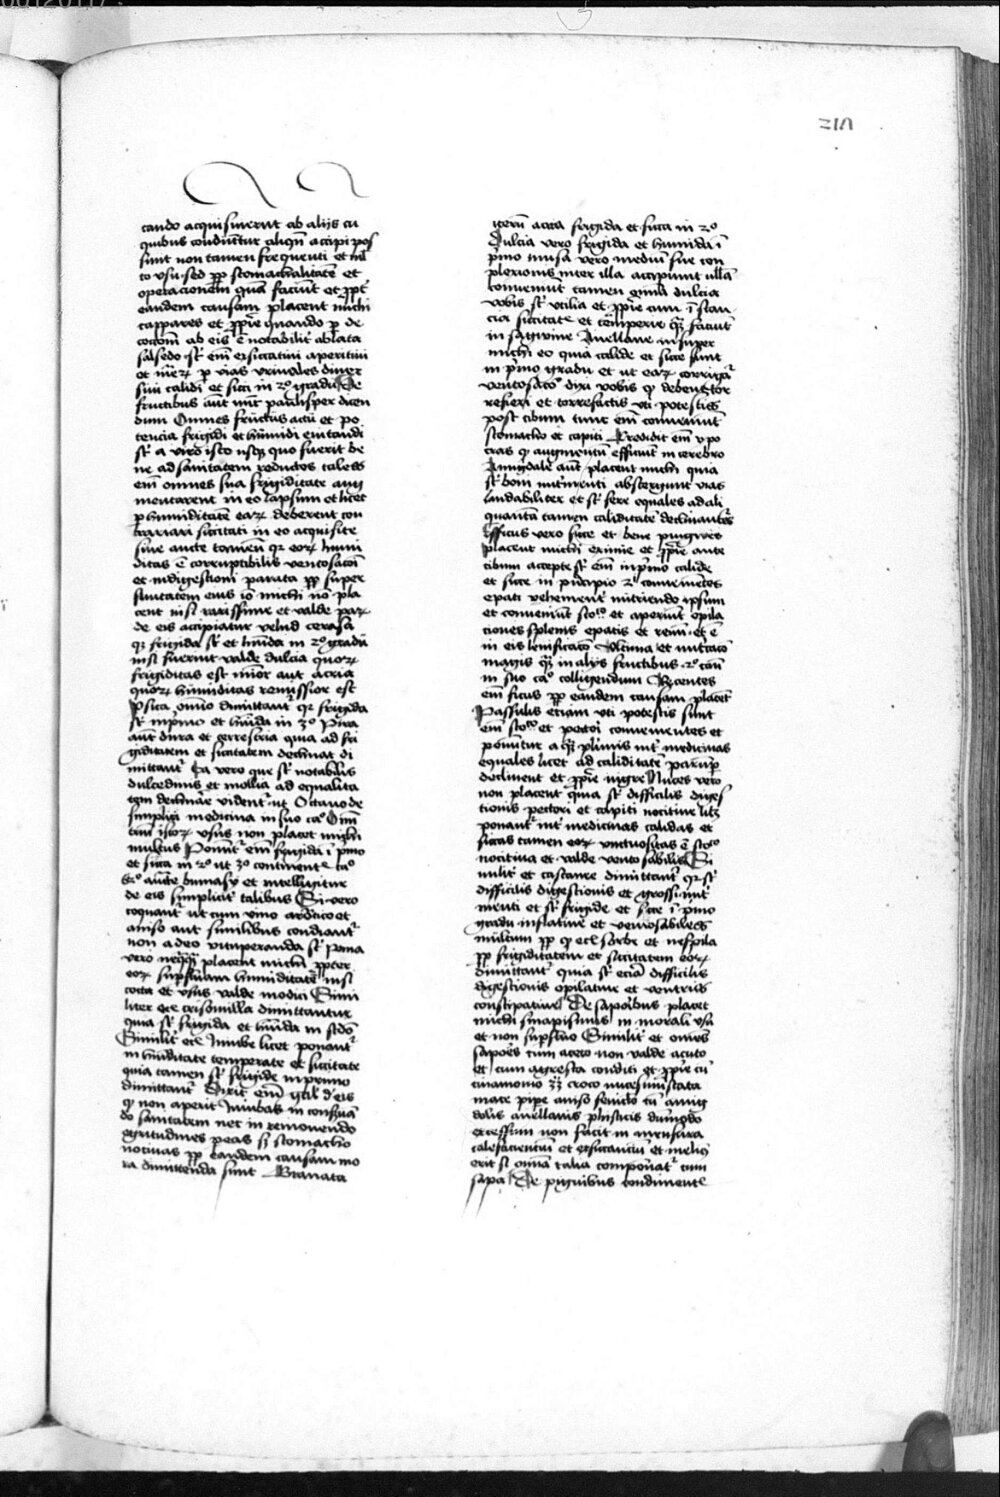 cando acquisiuerūt ab aliis cū
quibus condiūtur aliqñ accipi pos
sunt non tamen frequenti et ml
to vsu sed ꝓp stomachalitatē et
operacionem quā faciūt et ꝓpt
eandem causam placent michi
cappares et ꝓprie quando ꝑ de
coctoēm ab eis ē notabilit ablata
salsedo st eīm exsiccatiui aperitiui
et ꝑ vias vrinales
sūt calidi et sicci in 2º gradu De
fructibus aūt nūc paulisper dicen
dum Omnes fructus actu et po
tencia frigidi et humidi euitandi
ne ad sanitatem reductos tales
eīm omnes sua frigiditate aug
mentarent in eo lapsum et licet
ꝑ humiditatē eaꝝ deberent con
trariari siccitati in eo acquisite
siue aucte tamen qꝛ eoꝝ humi
ditas ē corruptibilis ventosacoī
et indigestioni parata ꝓp super
fluitatem eius iō michi nō pla
cent nisi rarissime et valde paꝝ
de eis accipiatur velud cerasa
qꝫ frigida st et hūida in 2º gradu
nisi fuerint valde dulcia quoꝝ
frigiditas est minor aut acria
quoꝝ humiditas remissior est
ꝑsica oīno dimittant qꝛ frigida
st in pmo et hūida in 3º Pira
aūt dura et terrestria quia ad fri
giditatem et siccitatem declinat di
mittant Ea vero que st notabilis
dulcedinis et mollia ad equalita
tem declinare vident ut Octauo de
simplici medicina in suo caº
tamen istoꝝ vsus non placet michi
multus Ponunt eīm frigida ī pmo
et sicca in 2º ut 3º continente
de eis simplicit talibus Si vero
coquant ut cum vino ardico et
aniso aut similibus condiant
non adeo vituperanda st Poma
vero neq̃q̃ placent michi ꝓpter
eoꝝ suꝑfluam humiditatē nisi
cocta et vsus valde modici Simi
liter ecē crisomilla dimittantur
quia st frigida et hūida in scdo
Similit ecē Iuiube licet ponant
in hūiditate temperate et siccitate
quia tamen st frigide in primo
dimittant Dixit eīm gal de eis
ꝙ non aperit Iuiubas in conseruā
do sanitatem nec in remouendo
egritudines peas sꝫ stomacho
nociuas ꝓp eandem causam mo
ra dimittenda sunt Granata
iterū acria frigida et sicca in 2º
Dulcia vero frigida et humida ī
pmo musa vero mediū sue con
plexionis inter illa accipiunt
conueniut tamen omīa dulcia
vobis st vtilia et ꝓprie cum ī stan
cia siccitate et cū temperie qꝫ faciūt
in sangwine Auellane insuper
michi eo quia calide et sicce sunt
in pmo gradu et ut eaꝝ corrigat
ventosacoº dixi vobis ꝙ debent tor
refieri et torrefactis vti potestis
post cibum tunc eīm conueniūt
stomacho et capiti Credidit eīm ypo
cras ꝙ augmentū efficiunt in cerebro
Amigdale aūt placent michi quia
st boni nutrimenti abstergunt vias
laudabiliter et st fere equales ad ali
quantā tamen caliditatē declinantes
Fficus vero sicce et bene pingwes
placent michi eximie et ꝓprie ante
cibum accepte st eīm in pmo calide
et sicce in principio 2ⁱ conuenientes
epati vehement nutriendo ipsum
et conueniūt stoº et aperiūt opila
ciones splenis epatis et renū et ē
in eis lenificacō Vltima et nutracō
magis qꝫ in aliis fructibus 2º canī
in suo caº colligendum Recentes
eīm ficus ꝓp eandem causam placēt
Passulis etiam vti potestis sunt
eīm stoº et pectori conuenientes et
ponuntur a qꝫ plimis int medicinas
equales licet ad caliditatē parūꝑ
declinent et ꝓprie nigre Nuces vero
non placent quia st difficilis diges
tionis pectori et capiti nociue licꝫ
ponant int medicinas calidas et
siccas tamen eoꝝ vnctuositas ē stoº
nociua et valde ventosabilis Si
milit et castanee dimittant qꝛ st
difficilis digestionis et grossi nut
menti et st frigide et sicce ī pmo
gradu inflatiue et ventosabiles
multum ꝓp ꝙ ecē sorbe et nespila
ꝓp frigiditatem et siccitatem eoꝝ
dimittant quia st eciā difficilis
digestionis opilatiue et ventris
constipatiue De saporibus placet
michi sinapismus in morali vsu
et non suꝑfluo Similit et omēs
sapoēs cum aceto non valde acuto
et cum agresta conditi et ꝓprie cū
cinamomo croco nucemuscata
mace pipe aniso feniclo cū amig
dolis auellanis pinsticis dūmodo
excessum non faciāt in mensura
calefacientiū et exsiccantiū et meliꝰ
erit si omīa talia componāt cum
sapa De pinguibus condimente